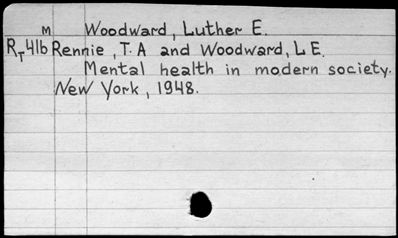 M Woodward, Luther E.
RT41b Rennie, T. A and Woodward, L E.
Mental health in modern society.
New York, 1948.